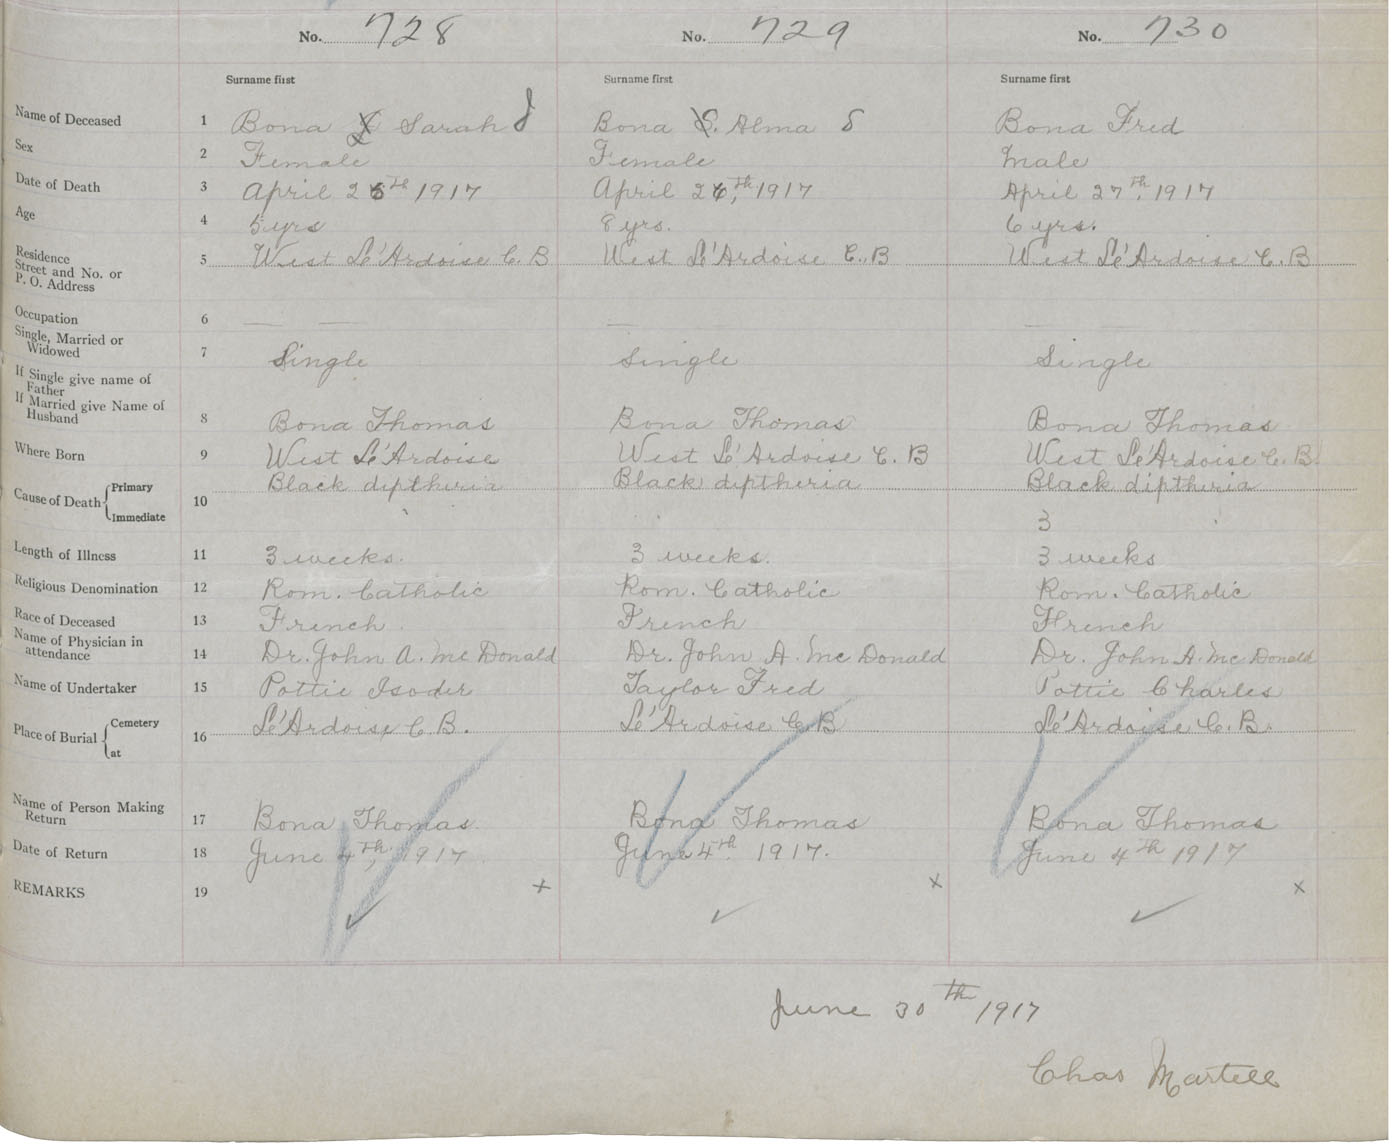 No. 728 No. 729 No. 730
Surname first Surname first Surname first
Name of Deceased 1 Bona Sarah J Bona S. Alma S Bona Fred
Sex 2 Female Female Male
Date of Death 3 April 26th 1917 April 26th, 1917 April 27th, 1917
Age 4 5 yrs 8 yrs. 6 yrs.
Residence
Street and No. or 5 West Le'Ardoise C. B West Le'Ardoise C. B West Le'Ardoise C. B
P. O. Address
Occupation 6 — — — —
Single, Married or
Widowed 7 Single Single Single
If Single give name of
Father
If Married give Name of
Husband 8 Bona Thomas Bona Thomas Bona Thomas
Where Born 9 West Le'Ardoise West Le'Ardoise C. B West Le'Ardoise C. B.
Primary Black diptheria Black diptheria Black diptheria
Cause of Death 10
Immediate 3
Length of Illness 11 3 weeks. 3 weeks. 3 weeks
Religious Denomination 12 Rom. Catholic Rom. Catholic Rom. Catholic
Race of Deceased 13 French French French
Name of Physician in
attendance 14 Dr. John A. Mc Donald Dr. John A. Mc Donald Dr. John A. Mc Donald
Name of Undertaker 15 Pottie Isoder Taylor Fred Pottie Charles
Cemetery Le'Ardoise C. B. Le'Ardoise C. B Le'Ardoise C. B.
Place of Burial 16
at
Name of Person Making
Return 17 Bona Thomas Bona Thomas Bona Thomas
Date of Return 18 June 4th, 1917 June 4th 1917. June 4th 1917
REMARKS 19 x x x
✓ ✓ ✓
June 30th 1917
Chas Martell